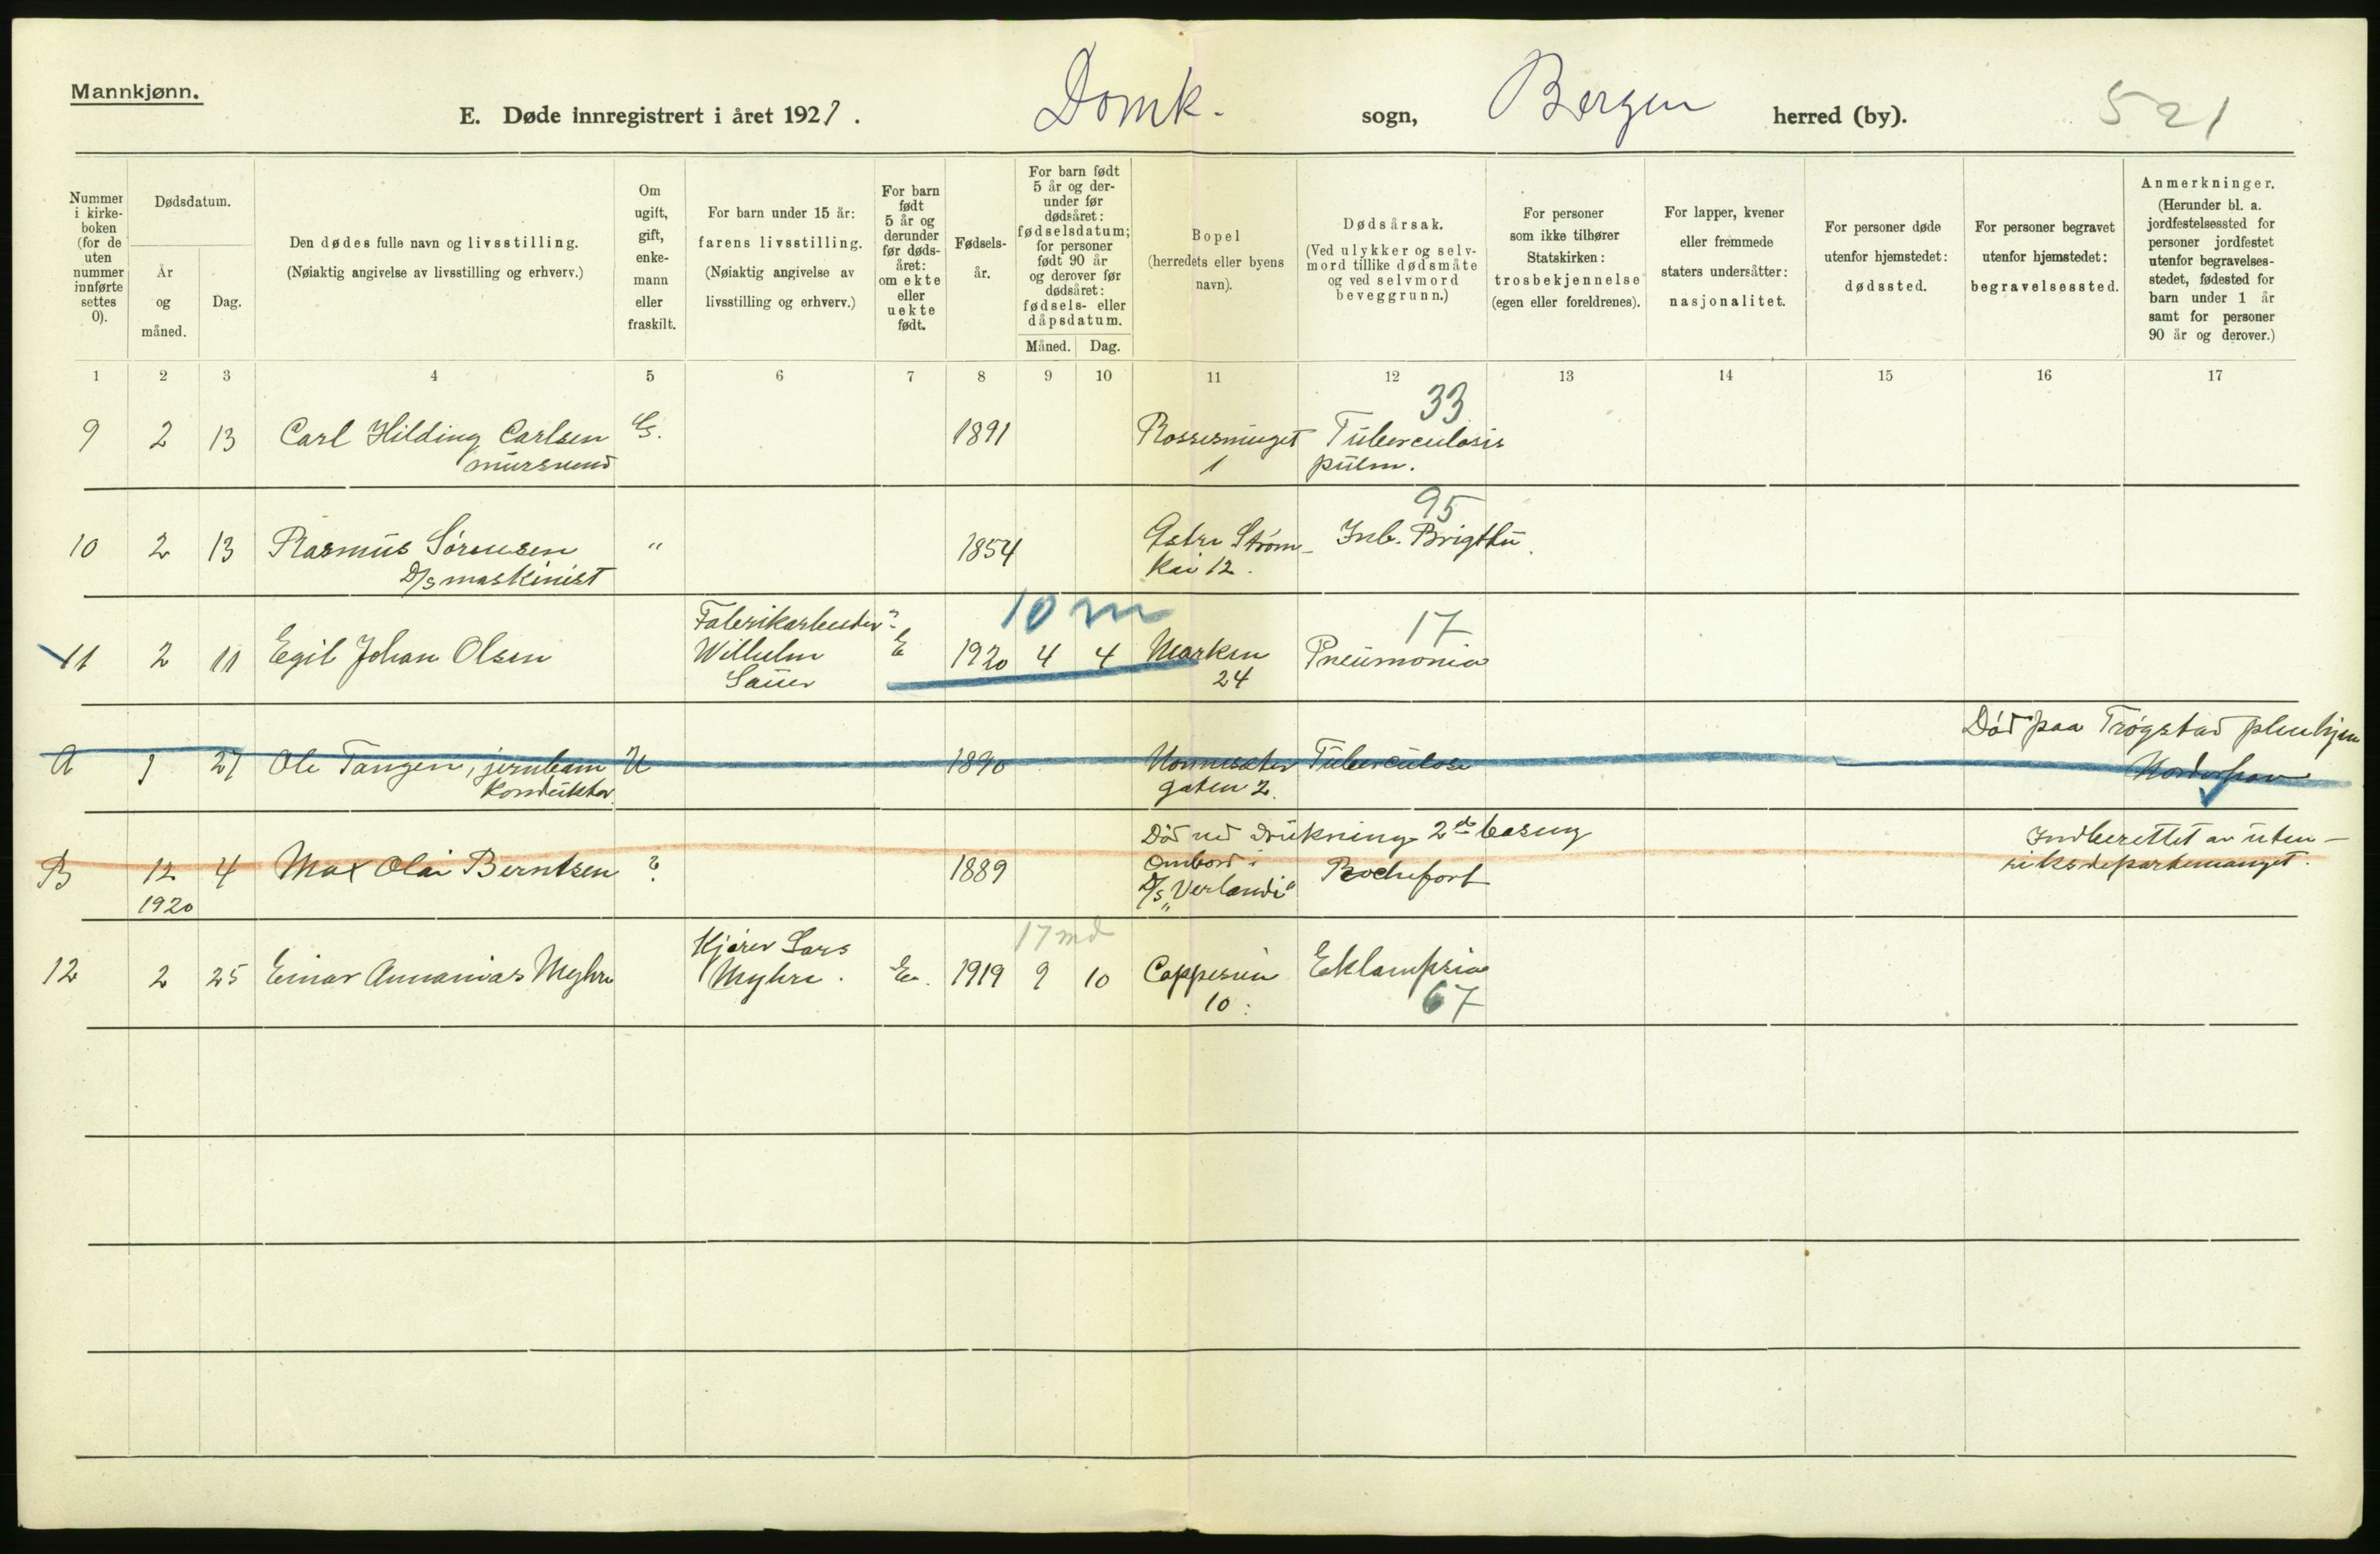 Mannkjønn.
E. Døde innregistrert i året 1921. Domk. sogn, Bergen herred (by). 521
Nummer i kirkeboken (for de uten nummer innførte settes 0).
Dødsdatum.
År og måned.
Dag.
Den dødes fulle navn og livsstilling.
(Nøiaktig angivelse av livsstilling og erhverv.)
Om ugift, gift, enkemann eller fraskilt.
For barn under 15 år:
farens livsstilling.
(Nøiaktig angivelse av livsstilling og erhverv.)
For barn født 5 år og derunder før dødsåret: om ekte eller uekte født.
Fødselsår.
For barn født 5 år og derunder før dødsåret: fødselsdatum; for personer født 90 år og derover før dødsåret: fødsels- eller dåpsdatum.
Måned. Dag.
Bopel
(herredets eller byens navn).
Dødsårsak.
(Ved ulykker og selvmord tillike dødsmåte og ved selvmord beveggrunn.)
For personer som ikke tilhører Statskirken: trosbekjennelse (egen eller foreldrenes).
For lapper, kvener eller fremmede staters undersåtter: nasjonalitet.
For personer døde utenfor hjemstedet: dødssted.
For personer begravet utenfor hjemstedet: begravelsessted.
Anmerkninger.
(Herunder bl. a. jordfestelsessted for personer jordfestet utenfor begravelsesstedet, fødested for barn under 1 år samt for personer 90 år og derover.)
1 2 3 4 5 6 7 8 9 10 11 12 13 14 15 16 17
33
9 2 13 Carl Hilding Carlsen G. 1891 Rossesmuget Tuberculosis
mursvend 1 pulm.
95
10 2 13 Rasmus Sørensen " 1854 Østre Strøm- Inb. Brigthii
D/s maskinist kai 12.
Fabrikarbeider ? 10 m 17
11 2 11 Egil Johan Olsen Wilhelm E 1920 4 4 Marken Pneumonia
Sauer 24
Død paa Trøgstad pleiehjem
A 1 27 Ole Tangen, jernbane U 1890 Tuberculose
Konduktør gaten 2.
Død ved drukning 2 Indberettet av uten-
B 12 4 Max Olai Berntsen ? 1889 ombord i Rochefort riksdepartemanget.
1920 D/s "Verlandi"
Kjører Lars 17 md
12 2 25 Einar Annanias Myhre Myhre. E. 1919 9 10 Cappesmu Eklampsia
10. 67